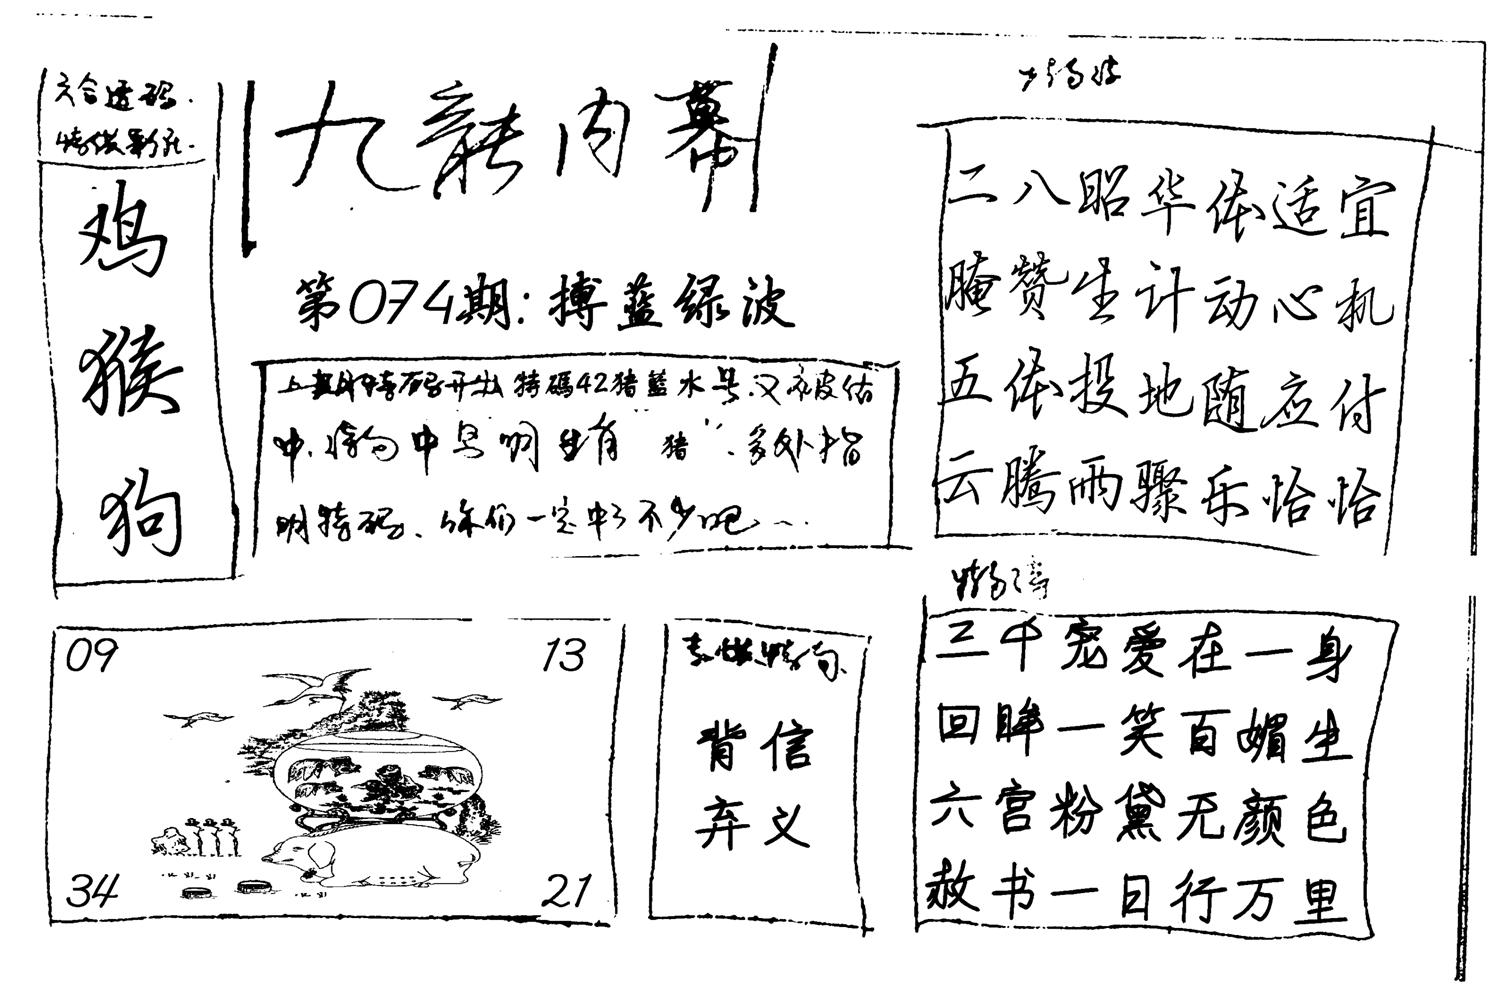 六合透码.
特供彩民.
鸡
猴
狗
九龍内幕
第074期:搏蓝绿波
上期特码开出特碼42猪藍水号.又被估
中.特句中早明出有"猪".多处指
明特码.你们一定中了不少吧...
二八昭华体适宜
腌赞生计动心机
五体投地随应付
云腾雨骤乐怡怡
三千宠爱在一身
回眸一笑百媚生
六宫粉黛无颜色
赦书一日行万里
背信
弃义
09
13
34
21